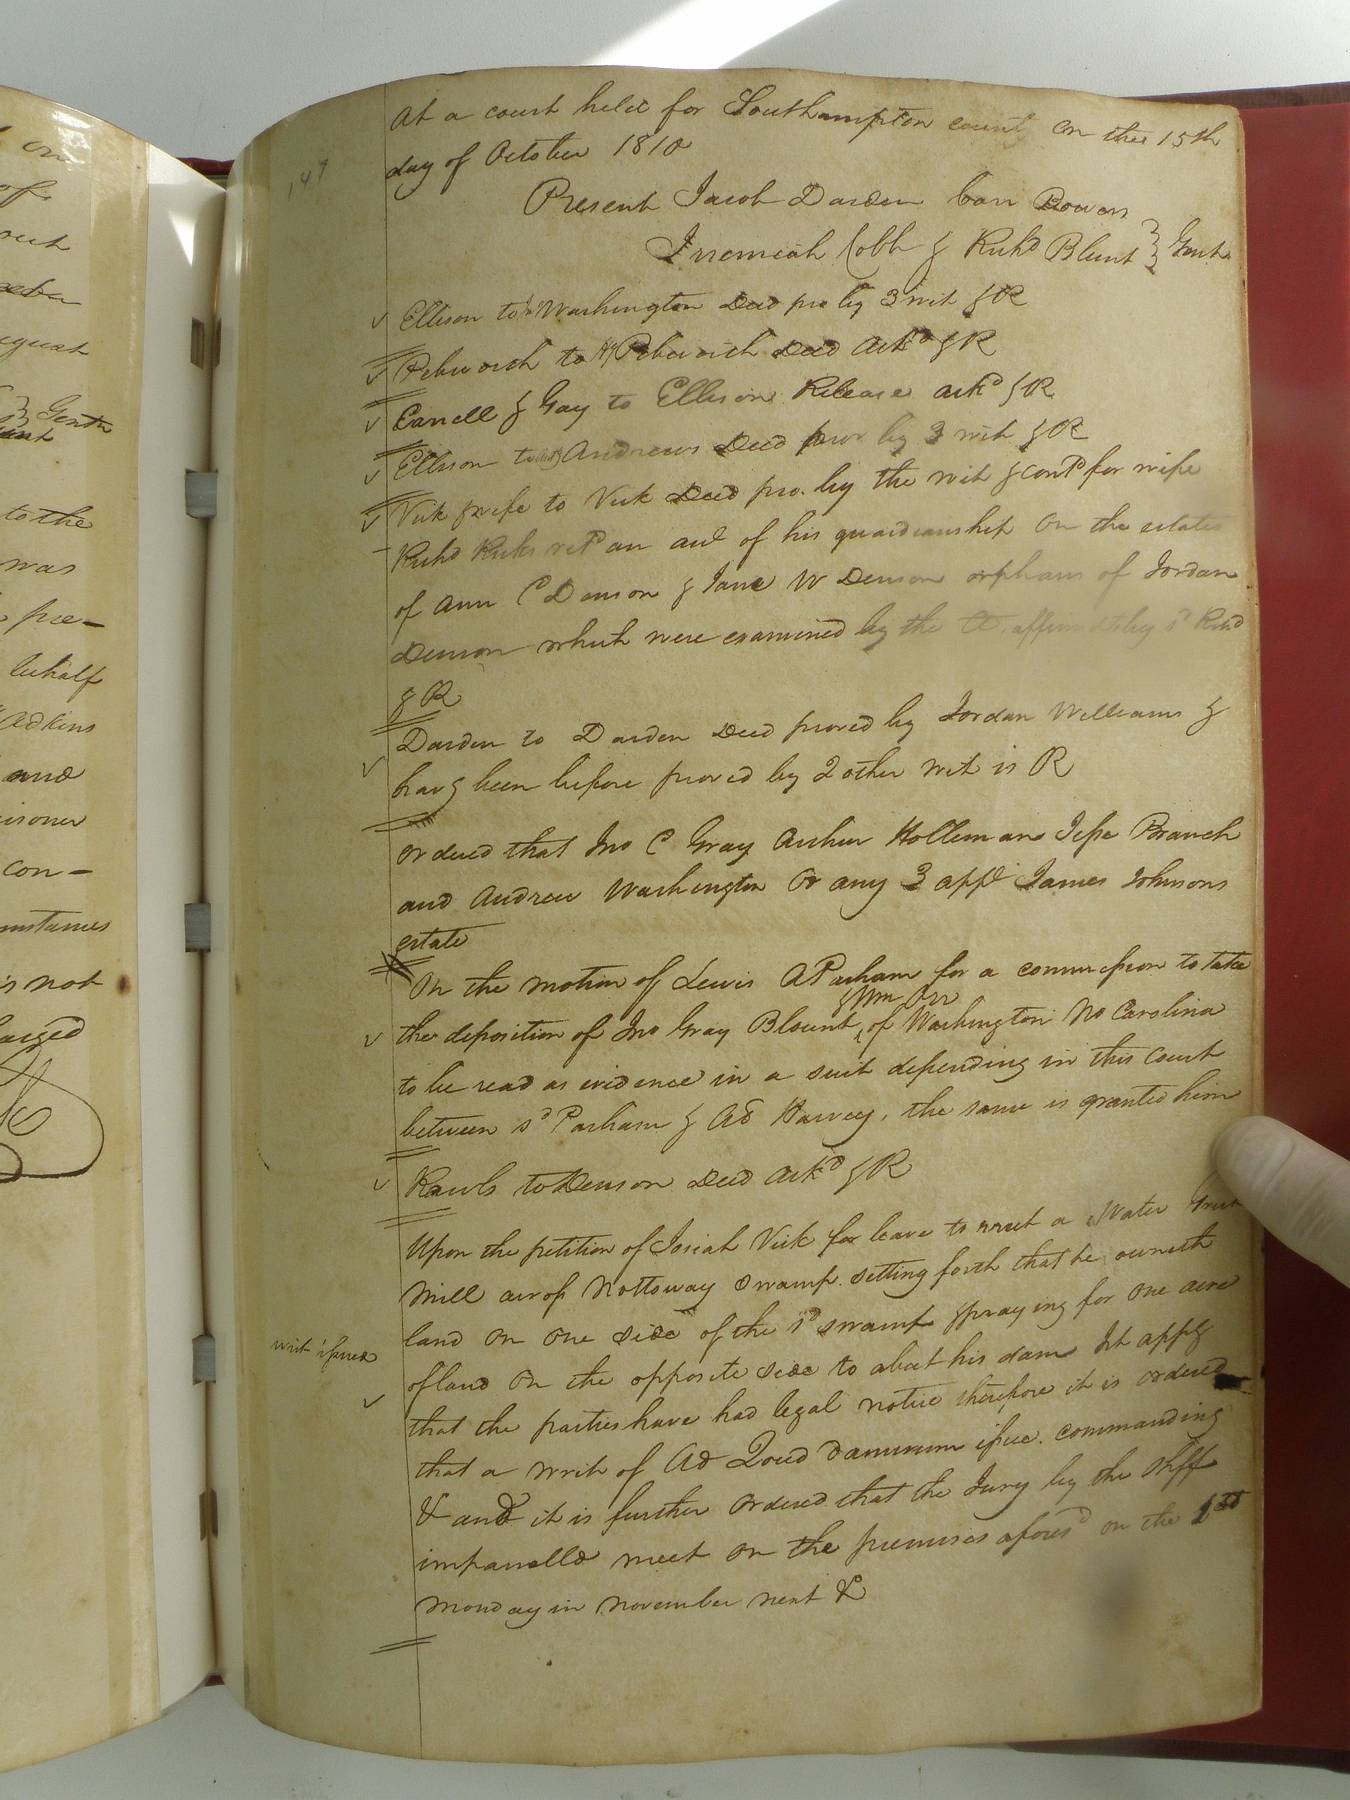 147
At a court held for Southampton county on the 15th
day of October 1810
Present Jacob Darden Carr Bowers
Jeremiah Cobb & Richd Blunt Gent
Ellison to Washington Deed pro by 3 wit & R
Pebworth to Hy Pebworth Deed Ackd & R
Carrell & Gay to Ellison Release ackd & R
Ellison to Andrews Deed prov by 3 wit & R
Vick & wife to Vick Deed pro. by the wit & contd for wife
Richd Ricks retd an acct of his guardianship on the estates
of Ann C Denson & Jane W Denson orphans of Jordan
Denson which were examined by the Ct. affirmed by sd Richd
& R
Darden to Darden Deed proved by Jordan Williams &
havg been before proved by 2 other wit is R
Ordered that Jno C Gray Arthur Holleman Jesse Branch
and Andrew Washington or any 3 appr James Johnsons
estate
On the motion of Lewis A Parham for a commission to take
& Wm Orr
the deposition of Jno Gray Blount of Washington No Carolina
to be read as evidence in a suit depending in this Court
between sd Parham & Ad Harvey, the same is granted him
Rawls to Denson Deed Ackd & R
Upon the petition of Josiah Vick for leave to erect a Water Grist
Mill across Nottoway Swamp. setting forth that he owneth
land on one side of the sd swamp & praying for one acre
writ issued
of land on the opposite side to abut his dam It appg
that the parties have had legal notice therefore it is ordered
that a writ of Ad Quod damnum issue. commanding
&c and it is further ordered that the Jury by the Shff
impanelled meet on the premises aforesd on the 1st
Monday in November next &c